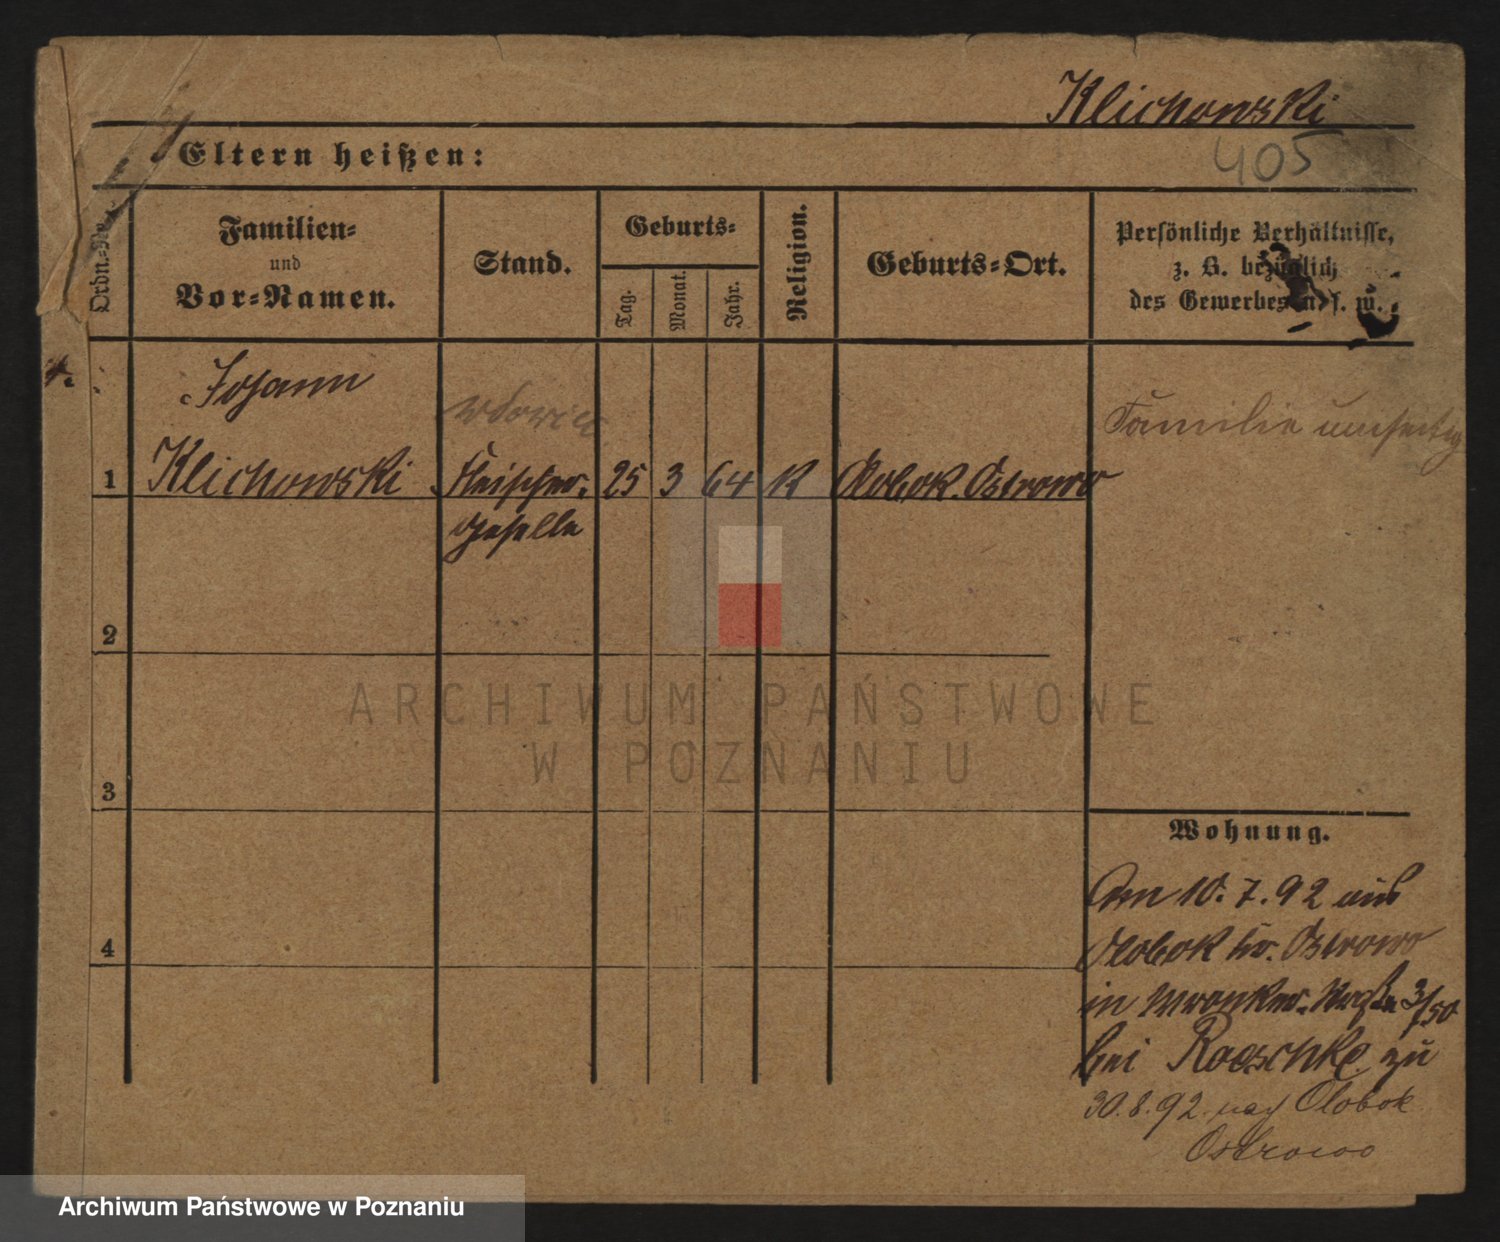 Klichowski
405
Eltern heißen:
Ordn.-Nr.
Familien-
und
Vor-Namen.
Stand.
Geburts-
Tag.
Monat.
Jahr.
Religion.
Geburts-Ort.
Persönliche Verhältnisse,
z. B. bezüglich
des Gewerbes u. s. w.
Johann
wdowiec
Familie umseitig
1
Klichowski
Fleischer-
25
3
64
K
Olobok. Ostrowo
geselle
2
3
4
Wohnung.
Am 10.7.92 aus
Olobok Kr. Ostrowo
in Wronker-Straße 3/50
bei Raeschke zu
30.8.92 nach Olobok
Ostrowo
ARCHIWUM PAŃSTWOWE
W POZNANIU
Archiwum Państwowe w Poznaniu